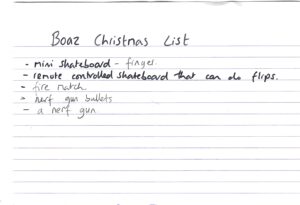 Boaz Christmas List
- mini skateboard - finger.
- remote controlled skateboard that can do flips.
- fire match
- nerf gun bullets
- a nerf gun